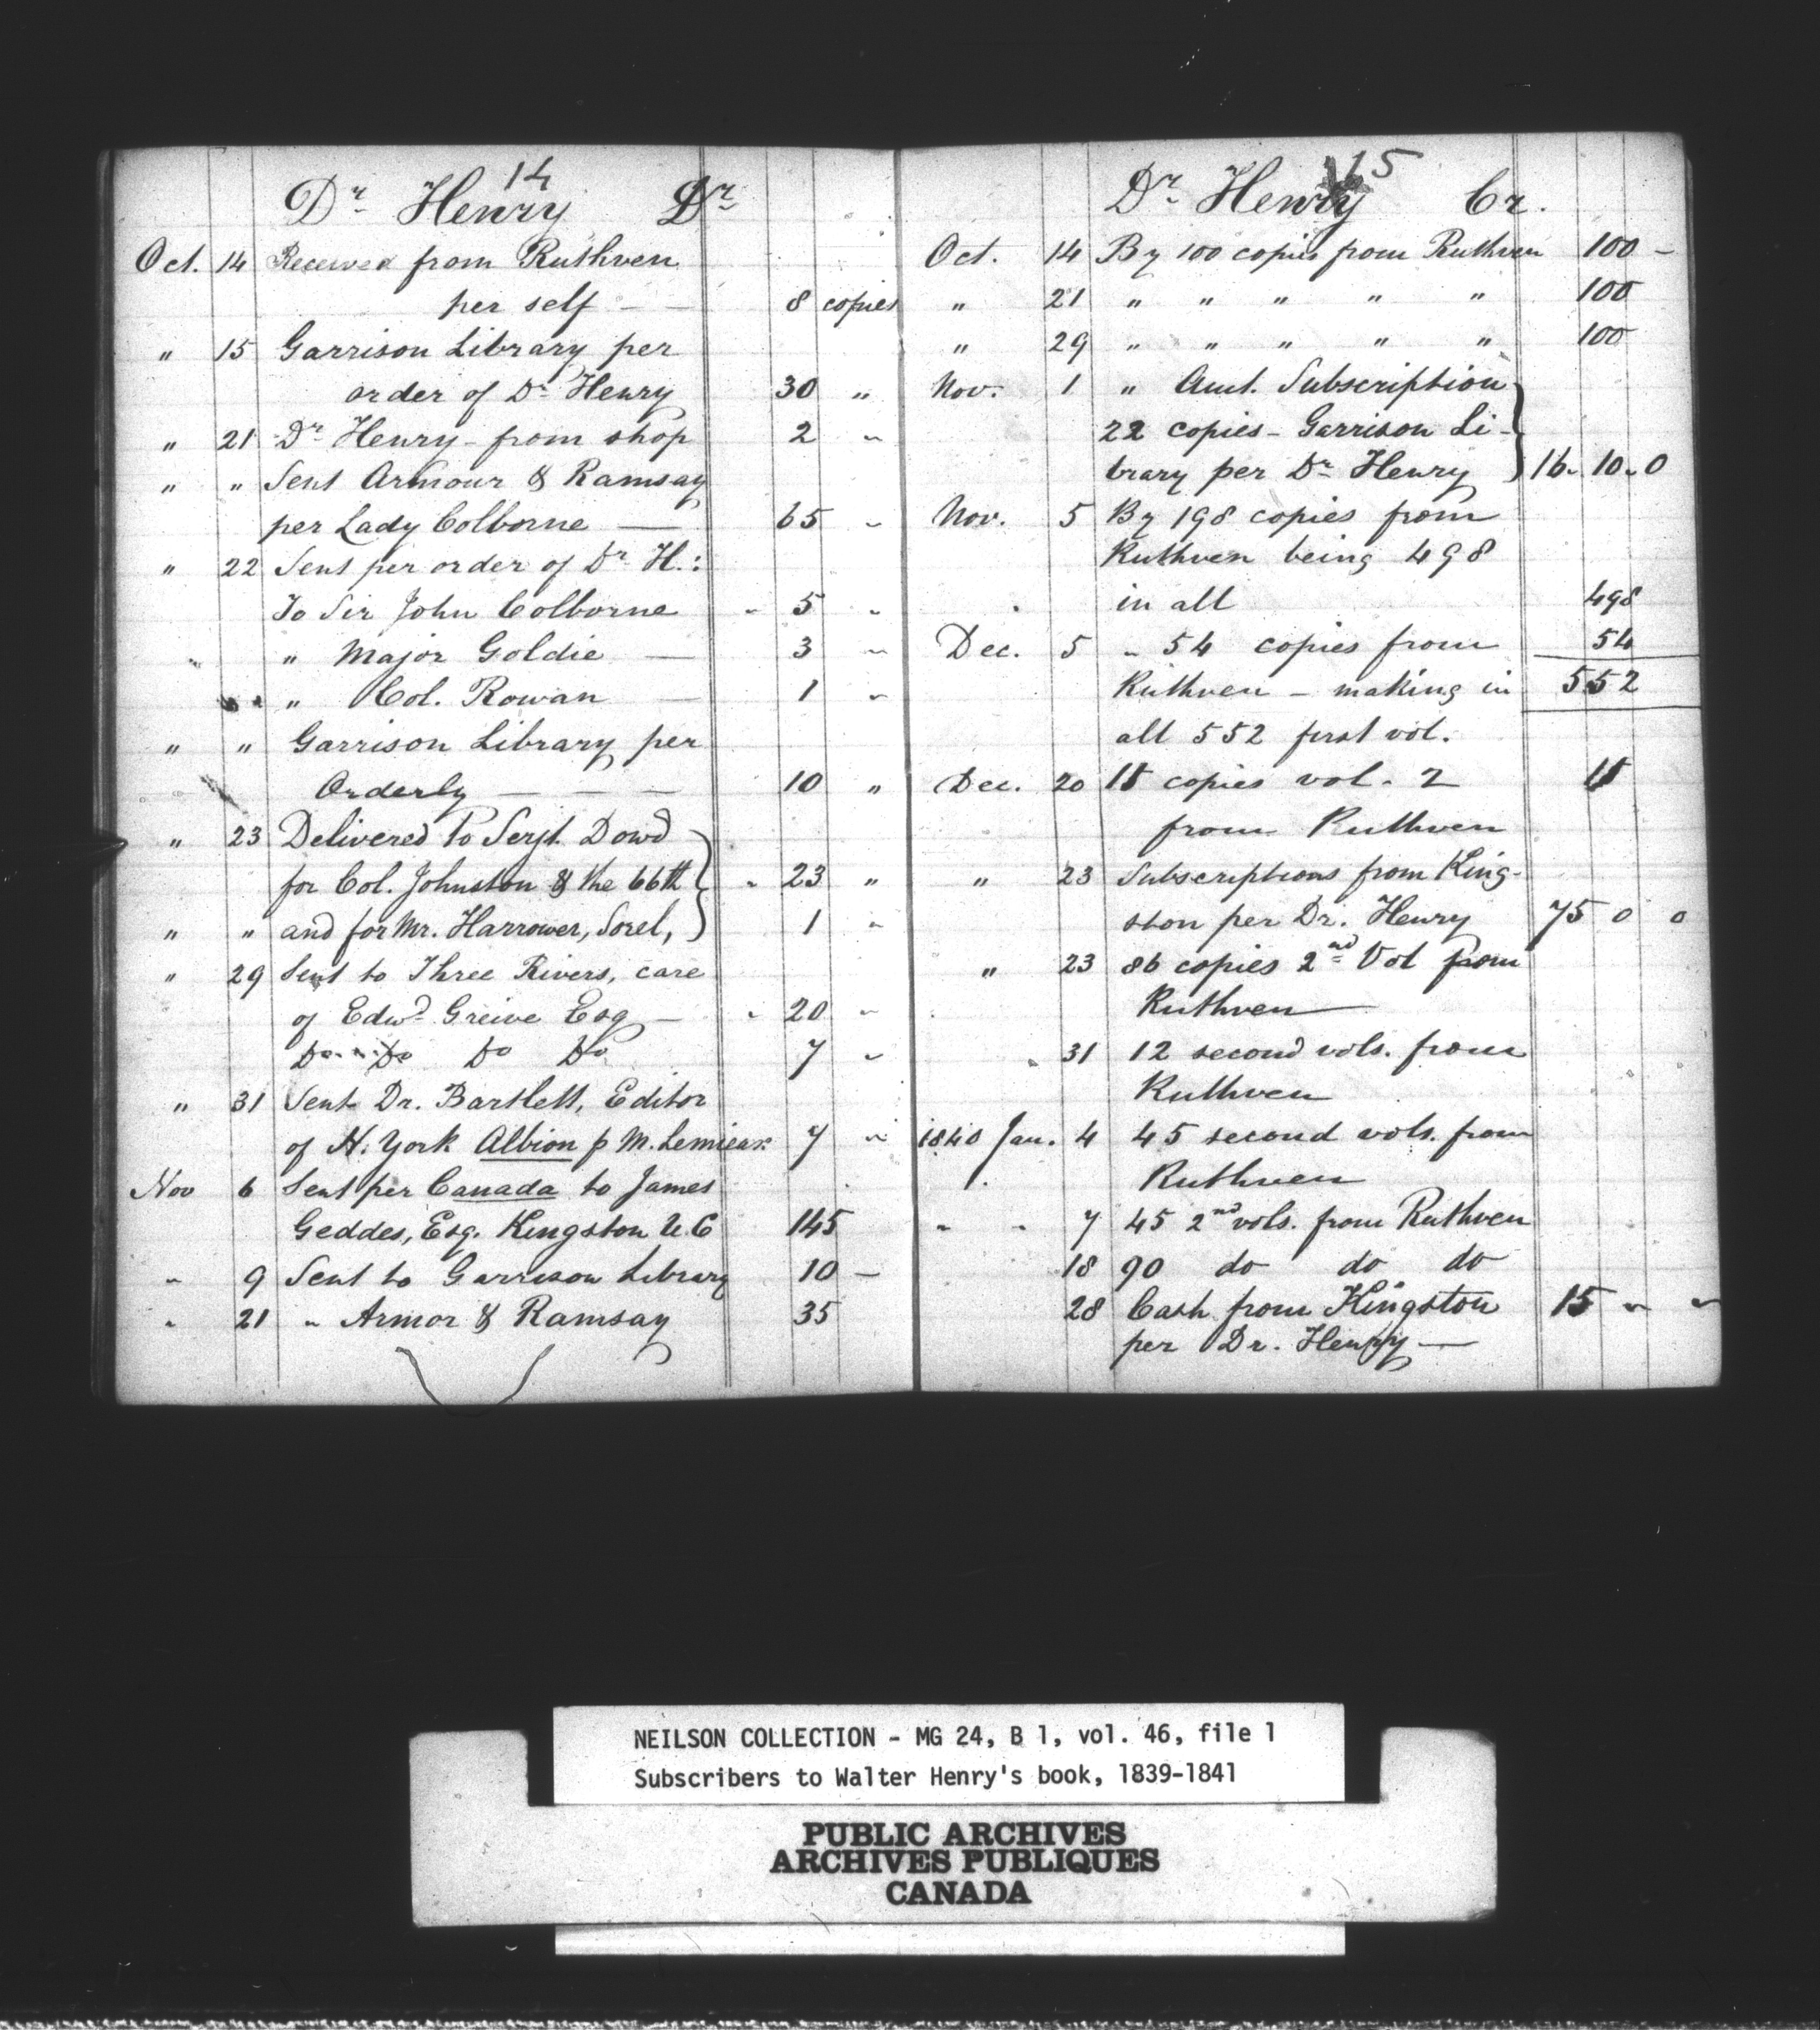 14
Dr Henry Dr
Oct. 14 Received from Ruthven
per self — — 8 copies
" 15 Garrison Library per
order of Dr Henry 30 "
" 21 Dr Henry - from shop 2 "
" " Sent Armour & Ramsay
per Lady Colborne — 65 "
" 22 Sent per order of Dr H.:
To Sir John Colborne 5 "
" Major Goldie — 3 "
" Col. Rowan — 1 "
" " Garrison Library per
Orderly — — — 10 "
" 23 Delivered to Serjt. Dowd
for Col. Johnston & the 66th 23 "
" " and for Mr. Harrower, Sorel, 1 "
" 29 Sent to Three Rivers, care
of Edwd Greive Esq — 20 "
Do Do Do Do 7 "
" 31 Sent Dr. Bartlett, Editor
of N. York Albion p M. Lemieux 7 "
Nov 6 Sent per Canada to James
Geddes, Esq. Kingston U.C 145
" 9 Sent to Garrison Library 10 —
" 21 " Armor & Ramsay 35
15
Dr Henry Cr.
Oct. 14 By 100 copies from Ruthven 100 -
" 21 " " " " " 100
" 29 " " " " " 100
Nov. 1 " Amt. Subscription
22 copies - Garrison Li-
brary per Dr Henry 16 " 10 " 0
Nov. 5 By 198 copies from
Ruthven being 498
in all 498
Dec. 5 " 54 copies from 54
Ruthven - making in 552
all 552 first vol.
Dec. 20 18 copies vol. 2
from Ruthven
" 23 Subscriptions from King-
ston per Dr. Henry 75 0 0
" 23 86 copies 2nd Vol from
Ruthven —
31 12 second vols. from
Ruthven
1840 Jan. 4 45 second vols. from
Ruthven
" " 7 45 2nd vols. from Ruthven
18 90 do do do
28 Cash from Kingston 15 " "
per Dr. Henry —
NEILSON COLLECTION - MG 24, B 1, vol. 46, file 1
Subscribers to Walter Henry's book, 1839-1841
PUBLIC ARCHIVES
ARCHIVES PUBLIQUES
CANADA